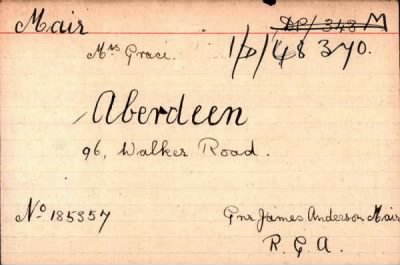 Mair DP/343 M
Mrs Grace. 1/D/48370.
Aberdeen
96, Walker Road.
No 185357 Gnr James Anderson Mair
R.G.A.